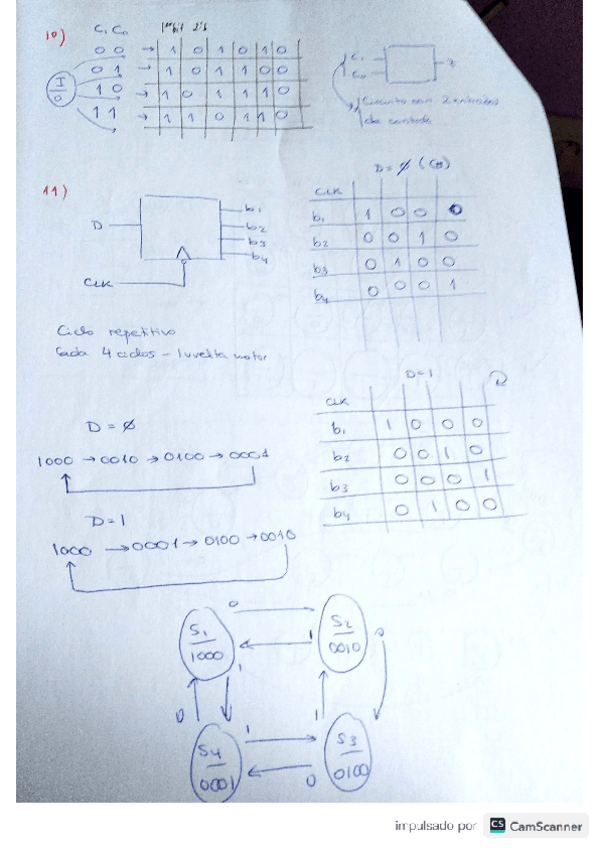 10)
C₁ C₀
00 → 1 0 1 0 1 0
01 → 1 0 1 1 0 0
10 → 1 0 1 1 1 0
11 → 1 1 0 1 1 0
I
0
C₁
C₀
z
Circuito con 2 entradas
de control
11)
D
CLK
b₁
b₂
b₃
b₄
D=∅
CLK
b₁ 1 0 0 0
b₂ 0 0 1 0
b₃ 0 1 0 0
b₄ 0 0 0 1
Ciclo repetitivo
Cada 4 ciclos - 1 vuelta motor
D=1
CLK
b₁ 1 0 0 0
b₂ 0 0 1 0
b₃ 0 0 0 1
b₄ 0 1 0 0
D=∅
1000 → 0010 → 0100 → 0001
D=1
1000 → 0001 → 0100 → 0010
0
S₁
1000
S₂
0010
1
0
1
0
1
1
S₄
0001
S₃
0100
0
impulsado por CS CamScanner